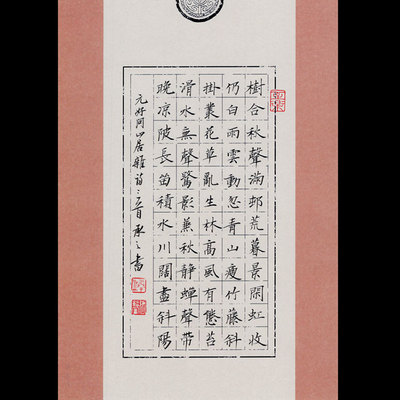 樹合秋聲滿邨荒暮景閑虹收
仍白雨雲動忽青山瘦竹藤斜
掛叢花草亂生林高風有態苔
滑水無聲鷺影兼秋靜蟬聲帶
晚涼陂長留積水川闊盡斜陽
元好問山居雜詩二首承之書